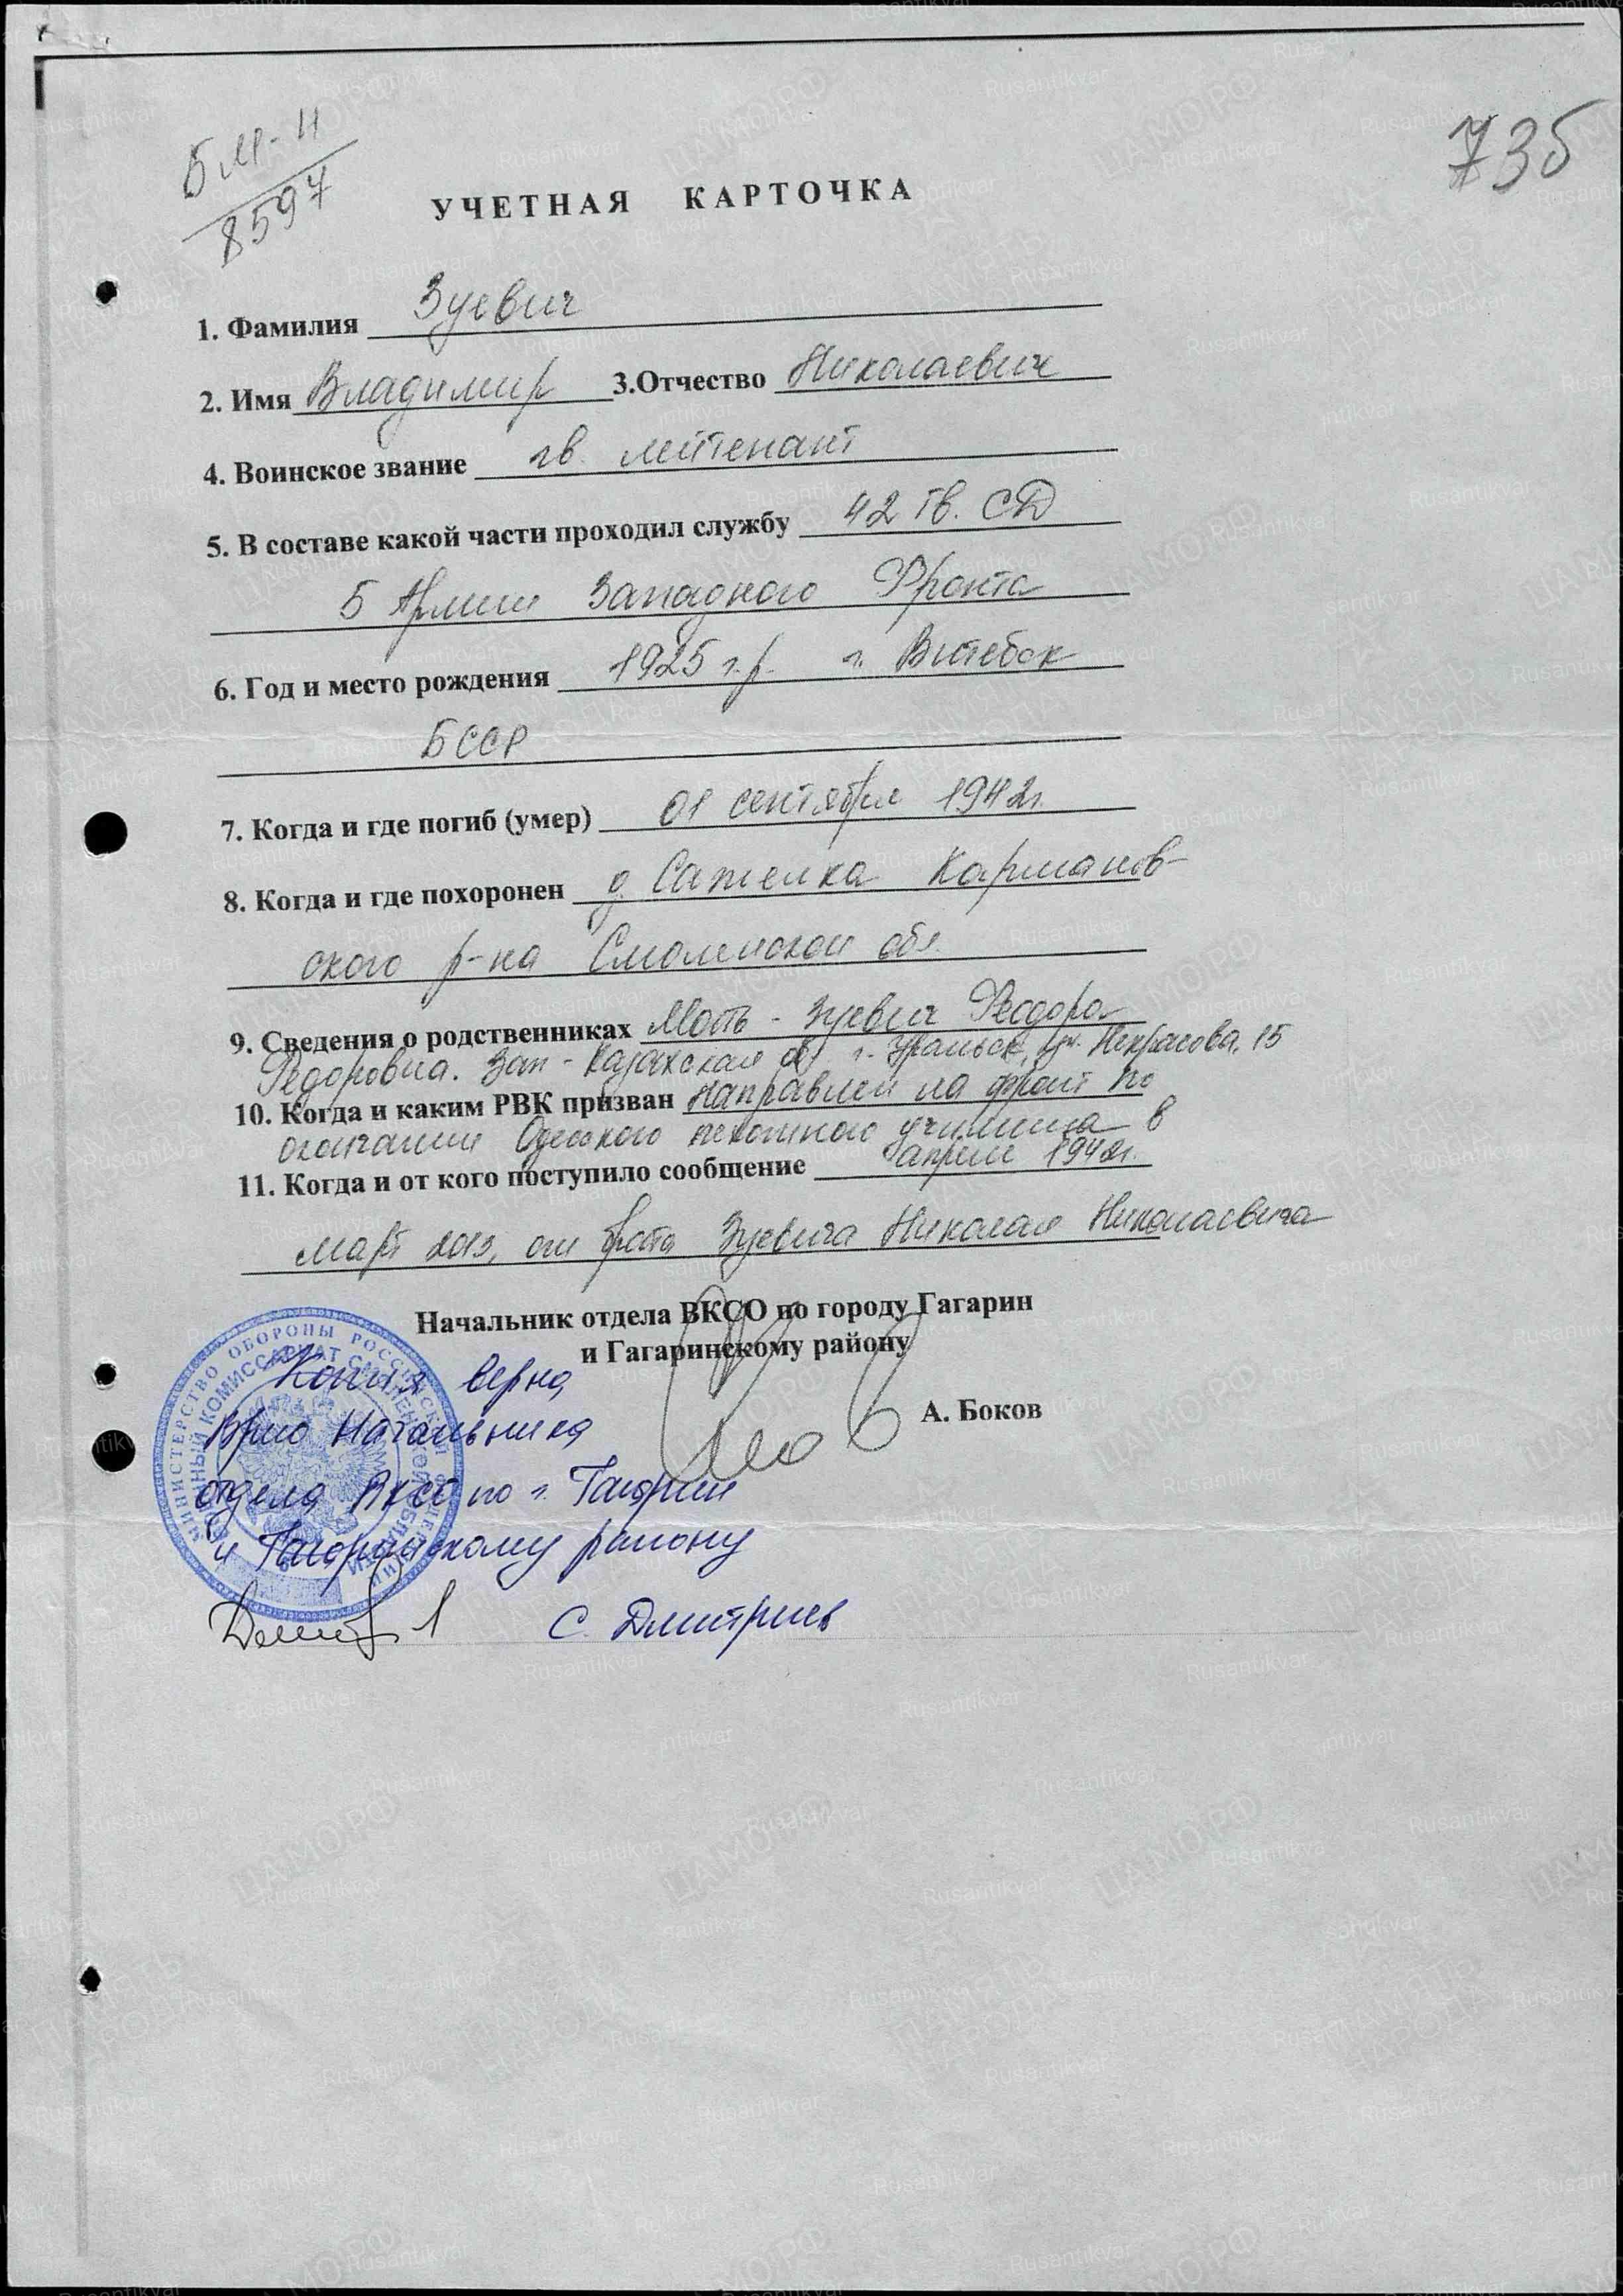 БМ-Н
8597
735
УЧЕТНАЯ КАРТОЧКА
1. Фамилия Зуевич
2. Имя Владимир 3.Отчество Николаевич
4. Воинское звание гв. лейтенант
5. В составе какой части проходил службу 42 Гв. СД
5 Армии Западного Фронта
6. Год и место рождения 1925 г.р. г. Витебск
БССР
7. Когда и где погиб (умер) 01 сентября 1942г.
8. Когда и где похоронен д. Саженка Карманов-
ского р-на Смоленской обл.
9. Сведения о родственниках Мать - Зуевич Феодора
Федоровна. Зап-Казахская обл. г. Уральск, ул. Некрасова, 15
10. Когда и каким РВК призван направлен на фронт по
окончании Одесского пехотного училища в
11. Когда и от кого поступило сообщение апреле 1942г.
март 2013, от брата Зуевича Николая Николаевича
Начальник отдела ВКСО по городу Гагарин
и Гагаринскому району
А. Боков
МИНИСТЕРСТВО ОБОРОНЫ РОССИЙСКОЙ ФЕДЕРАЦИИ
ВОЕННЫЙ КОМИССАРИАТ СМОЛЕНСКОЙ ОБЛАСТИ
Копия верна
Врио Начальника
отдела ВКСО по г. Гагарин
и Гагаринскому району
С. Дмитриев
Rusantikvar
ЦАМО.РФ
ПАМЯТЬ НАРОДА